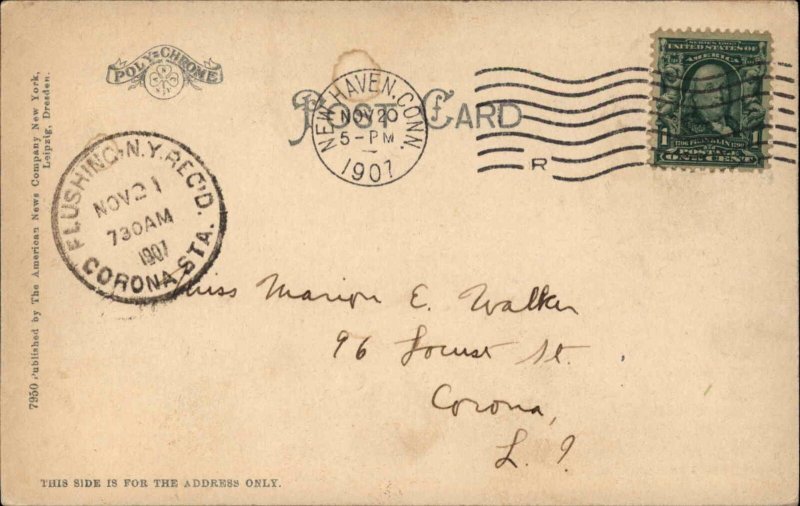 POLY-CHROME
POST CARD
NEW HAVEN, CONN.
NOV 20
5-PM
1907
R
SERIES 1902
UNITED STATES OF
AMERICA
1706 FRANKLIN 1790
1 POSTAGE 1
ONE CENT
FLUSHING, N.Y. REC'D.
NOV 21
730AM
1907
CORONA STA.
7950 Published by The American News Company New York,
Leipzig, Dresden.
Miss Marion E. Walker
96 Locust St.
Corona,
L. I.
THIS SIDE IS FOR THE ADDRESS ONLY.